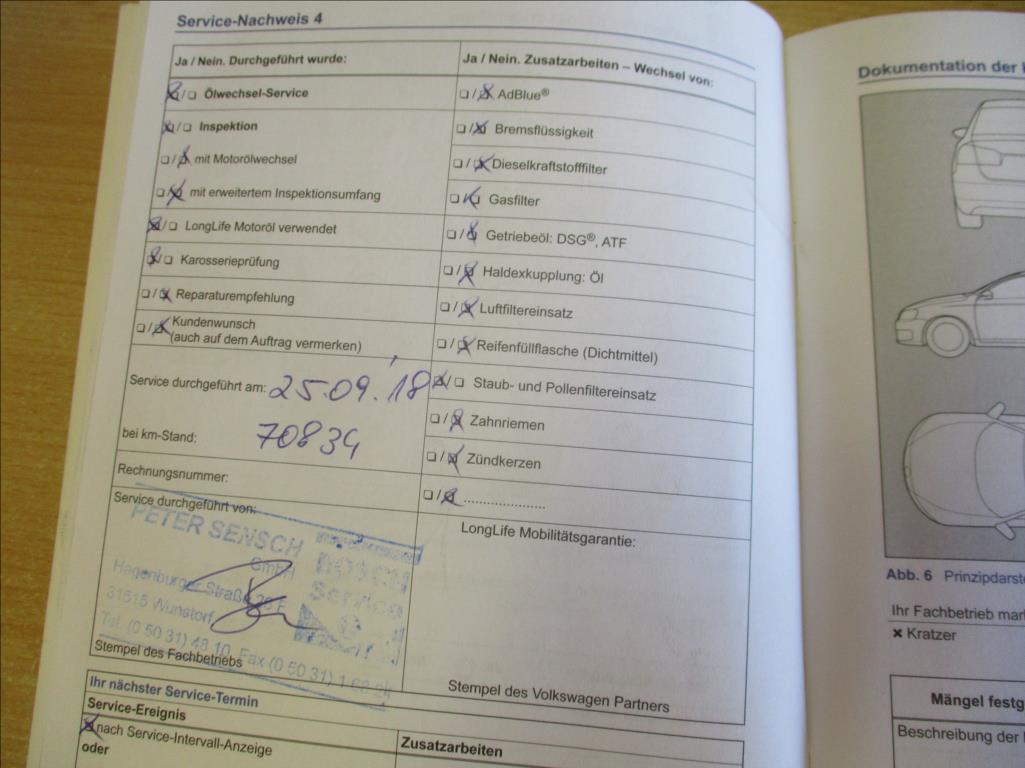 Service-Nachweis 4
Ja / Nein. Durchgeführt wurde:
Ölwechsel-Service
Inspektion
mit Motorölwechsel
mit erweitertem Inspektionsumfang
LongLife Motoröl verwendet
Karosserieprüfung
Reparaturempfehlung
Kundenwunsch
(auch auf dem Auftrag vermerken)
Service durchgeführt am: 25.09.18
bei km-Stand: 70834
Rechnungsnummer:
Service durchgeführt von:
PETER SENSCH
GmbH
Hagenburger Straße
31515 Wunstorf
Tel. (0 50 31) 48 10, Fax (0 50 31) 1 68 24
BOSCH
Service
Stempel des Fachbetriebs
Ja / Nein. Zusatzarbeiten – Wechsel von:
AdBlue®
Bremsflüssigkeit
Dieselkraftstofffilter
Gasfilter
Getriebeöl: DSG®, ATF
Haldexkupplung: Öl
Luftfiltereinsatz
Reifenfüllflasche (Dichtmittel)
Staub- und Pollenfiltereinsatz
Zahnriemen
Zündkerzen
......................
LongLife Mobilitätsgarantie:
Stempel des Volkswagen Partners
Ihr nächster Service-Termin
Service-Ereignis
nach Service-Intervall-Anzeige
oder
Zusatzarbeiten
Dokumentation der
Abb. 6 Prinzipdarste
Ihr Fachbetrieb mar
× Kratzer
Mängel festg
Beschreibung der